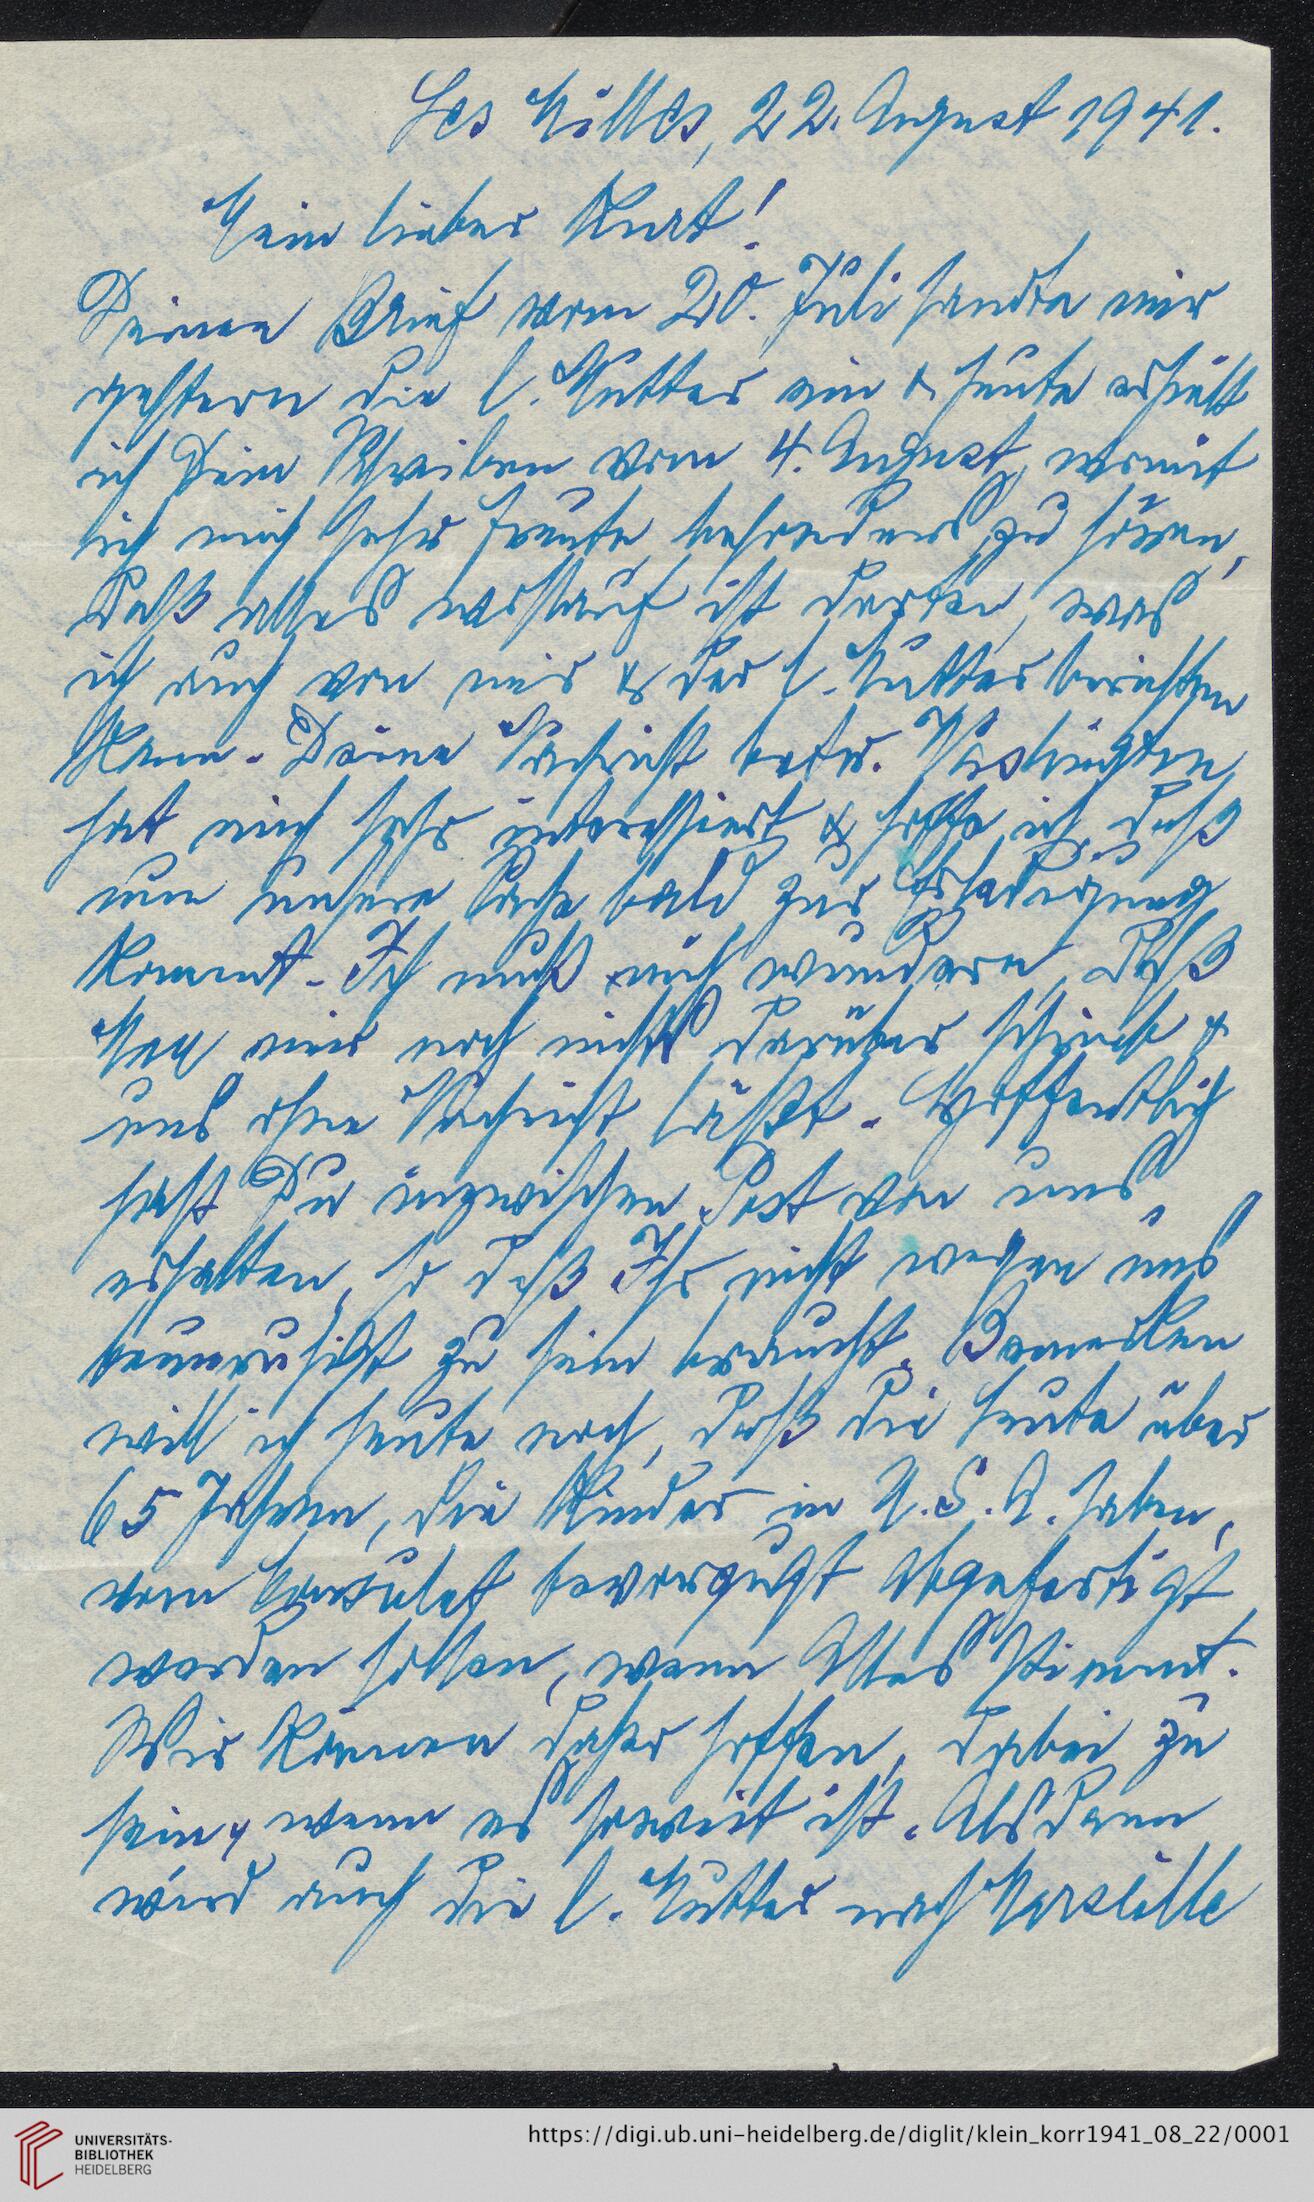 Les Milles, 22. August 1941.
Mein lieber Kurt!
Deinen Brief vom 20. Juli sandte mir
gestern die l. Mutter ein & heute erhielt
ich Dein Schreiben vom 4. August, womit
ich mich sehr freute, besonders zu hören,
daß alles wohlauf ist dorten, was
ich auch von mir & der l. Mutter berichten
kann. Deine Nachricht betr. Washington
hat mich sehr interessiert & hoffe ich, daß
nun unsere Sache bald zur Erledigung
kommt. Ich muß mich wundern, daß
Max mir noch nichts darüber schrieb &
uns ohne Nachricht läßt. Hoffentlich
hast Du inzwischen Post von uns
erhalten, so daß Ihr nicht wegen uns
beunruhigt zu sein braucht. Bemerken
will ich heute noch, daß die Leute über
65 Jahren, die Kinder in U.S.A. haben,
vom Consulat bevorzugt abgefertigt
werden sollen, wenn Alles stimmt.
Wir können daher hoffen, dabei zu
sein, wenn es soweit ist. Alsdann
wird auch die l. Mutter nach Marseille
UNIVERSITÄTS-
BIBLIOTHEK
HEIDELBERG
https://digi.ub.uni-heidelberg.de/diglit/klein_korr1941_08_22/0001